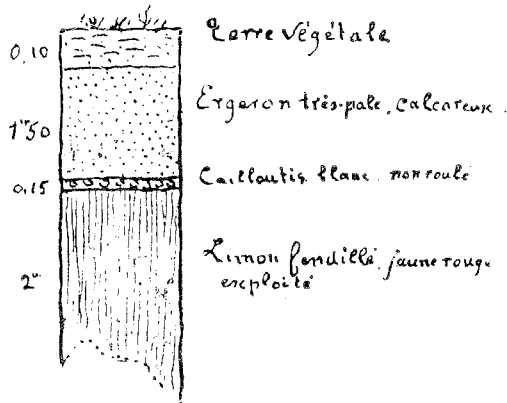 0,10 Terre végétale
1m50 Ergeron très-pale, calcareux.
0,15 Cailloutis blanc. non roulé
2m Limon fendillé. jaune rouge
exploité